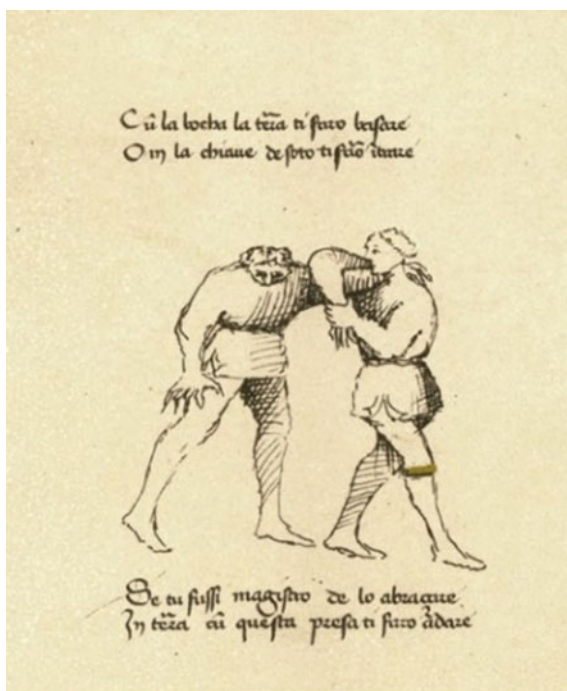 Cũ la bocha la tẽra ti faro basare
O in la chiaue de soto ti farõ intrare
Se tu fussi magistro de lo abraçare
In tẽra cũ questa presa ti faro ãdare